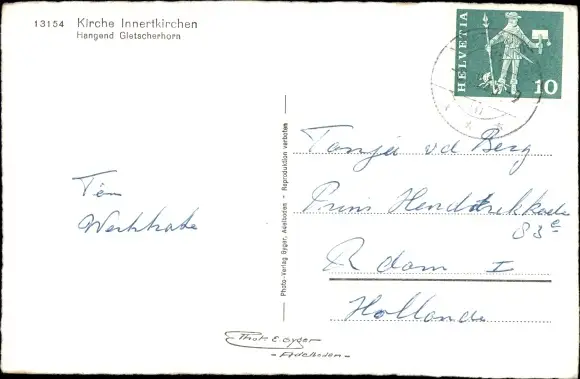 13154 Kirche Innertkirchen
Hangend Gletscherhorn
HELVETIA
10
Tanja vd Berg
Prins Hendrikkade
83e
R dam I
Hollande
Photo-Verlag Gyger, Adelboden - Reproduktion verboten
Photo E Gyger
- Adelboden -